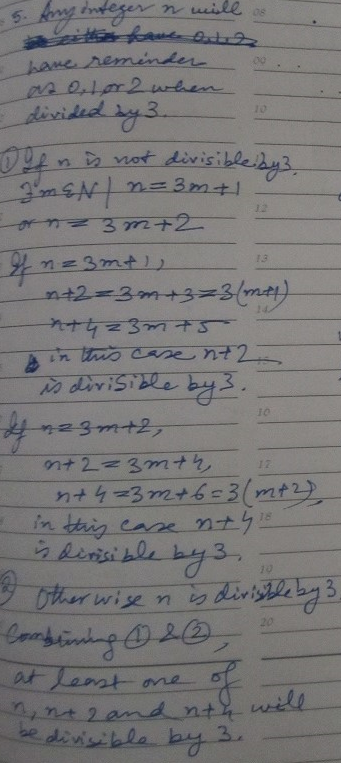 5. Any integer n will 08
either have 0,1,2
have reminder 09
as 0,1 or 2 when
divided by 3. 10
① If n is not divisible by 3,
∃m∈N | n=3m+1
or n = 3m+2 12
If n=3m+1, 13
n+2=3m+3=3(m+1)
n+4=3m+5 14
in this case n+2 15
is divisible by 3.
If n=3m+2, 16
n+2=3m+4, 17
n+4=3m+6=3(m+2),
in this case n+4 18
is divisible by 3.
19
② Otherwise n is divisible by 3
Combining ① & ②, 20
at least one of
n, n+2 and n+4 will
be divisible by 3.